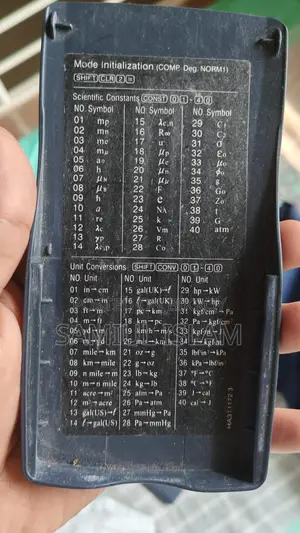 Mode Initialization (COMP, Deg, NORM1)
SHIFT CLR 2 =
Scientific Constants CONST 01 - 40
NO. Symbol NO. Symbol NO. Symbol
01 mp 15 λc,n 29 C₁
02 mn 16 R∞ 30 C₂
03 me 17 u 31 σ
04 mμ 18 μp 32 ε₀
05 a₀ 19 μe 33 μ₀
06 h 20 μn 34 φ₀
07 μN 21 μμ 35 g
08 μB 22 F 36 G₀
09 ħ 23 e 37 Z₀
10 α 24 NA 38 t
11 re 25 k 39 G
12 λc 26 Vm 40 atm
13 γp 27 R
14 λc,p 28 C₀
Unit Conversions SHIFT CONV 01 - 40
NO. Unit NO. Unit NO. Unit
01 in→cm 15 gal(UK)→ℓ 29 hp→kW
02 cm→in 16 ℓ→gal(UK) 30 kW→hp
03 ft→m 17 pc→km 31 kgf/cm²→Pa
04 m→ft 18 km→pc 32 Pa→kgf/cm²
05 yd→m 19 km/h→m/s 33 kgf·m→J
06 m→yd 20 m/s→km/h 34 J→kgf·m
07 mile→km 21 oz→g 35 lbf/in²→kPa
08 km→mile 22 g→oz 36 kPa→lbf/in²
09 n mile→m 23 lb→kg 37 °F→°C
10 m→n mile 24 kg→lb 38 °C→°F
11 acre→m² 25 atm→Pa 39 J→cal
12 m²→acre 26 Pa→atm 40 cal→J
13 gal(US)→ℓ 27 mmHg→Pa
14 ℓ→gal(US) 28 Pa→mmHg
HA311172-3